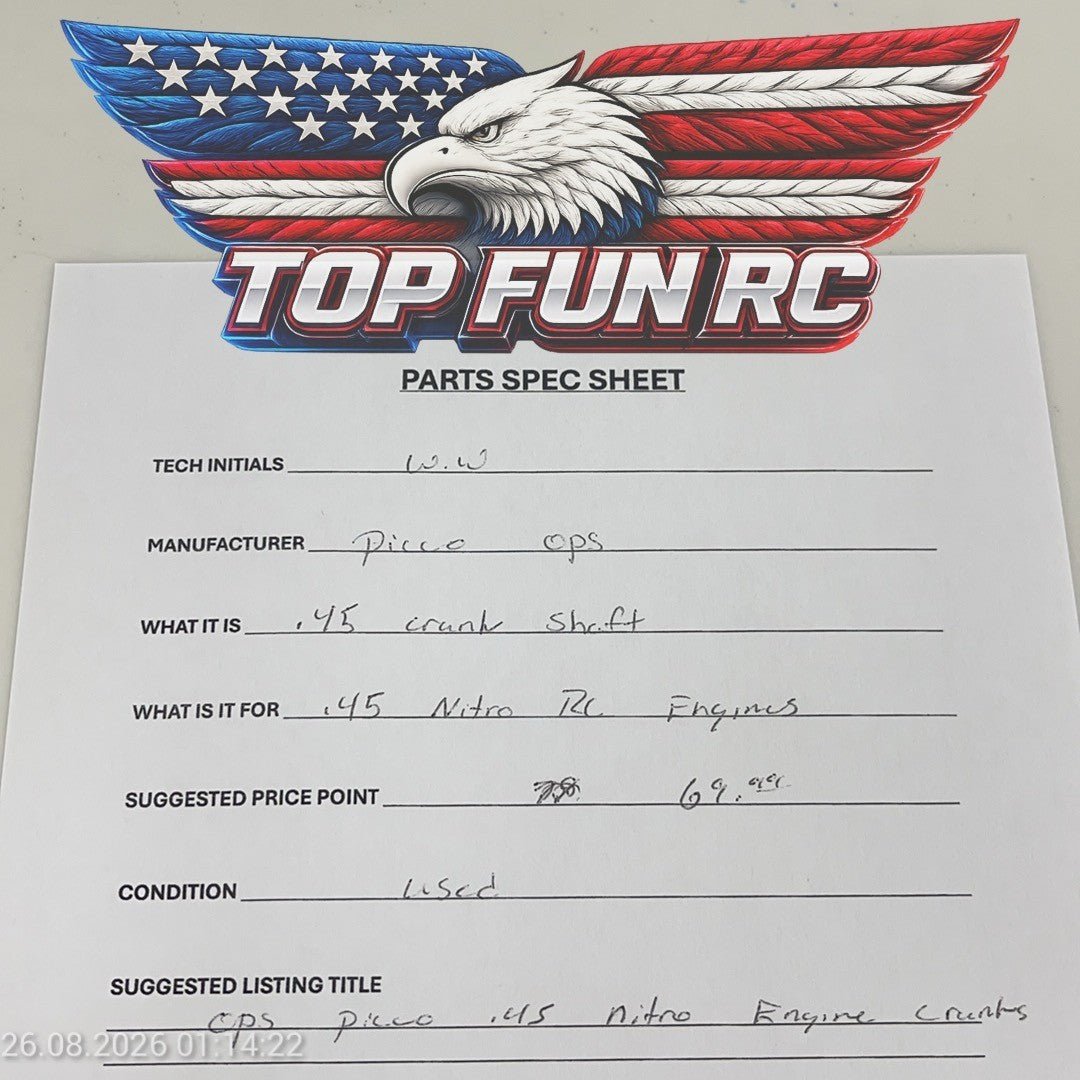 TOP FUN RC
PARTS SPEC SHEET
TECH INITIALS W.W
MANUFACTURER Picco OPS
WHAT IT IS .45 crank Shaft
WHAT IS IT FOR .45 Nitro RC Engines
SUGGESTED PRICE POINT 69.99
CONDITION used
SUGGESTED LISTING TITLE
OPS Picco .45 nitro Engine Cranks
26.08.2026 01:14:22